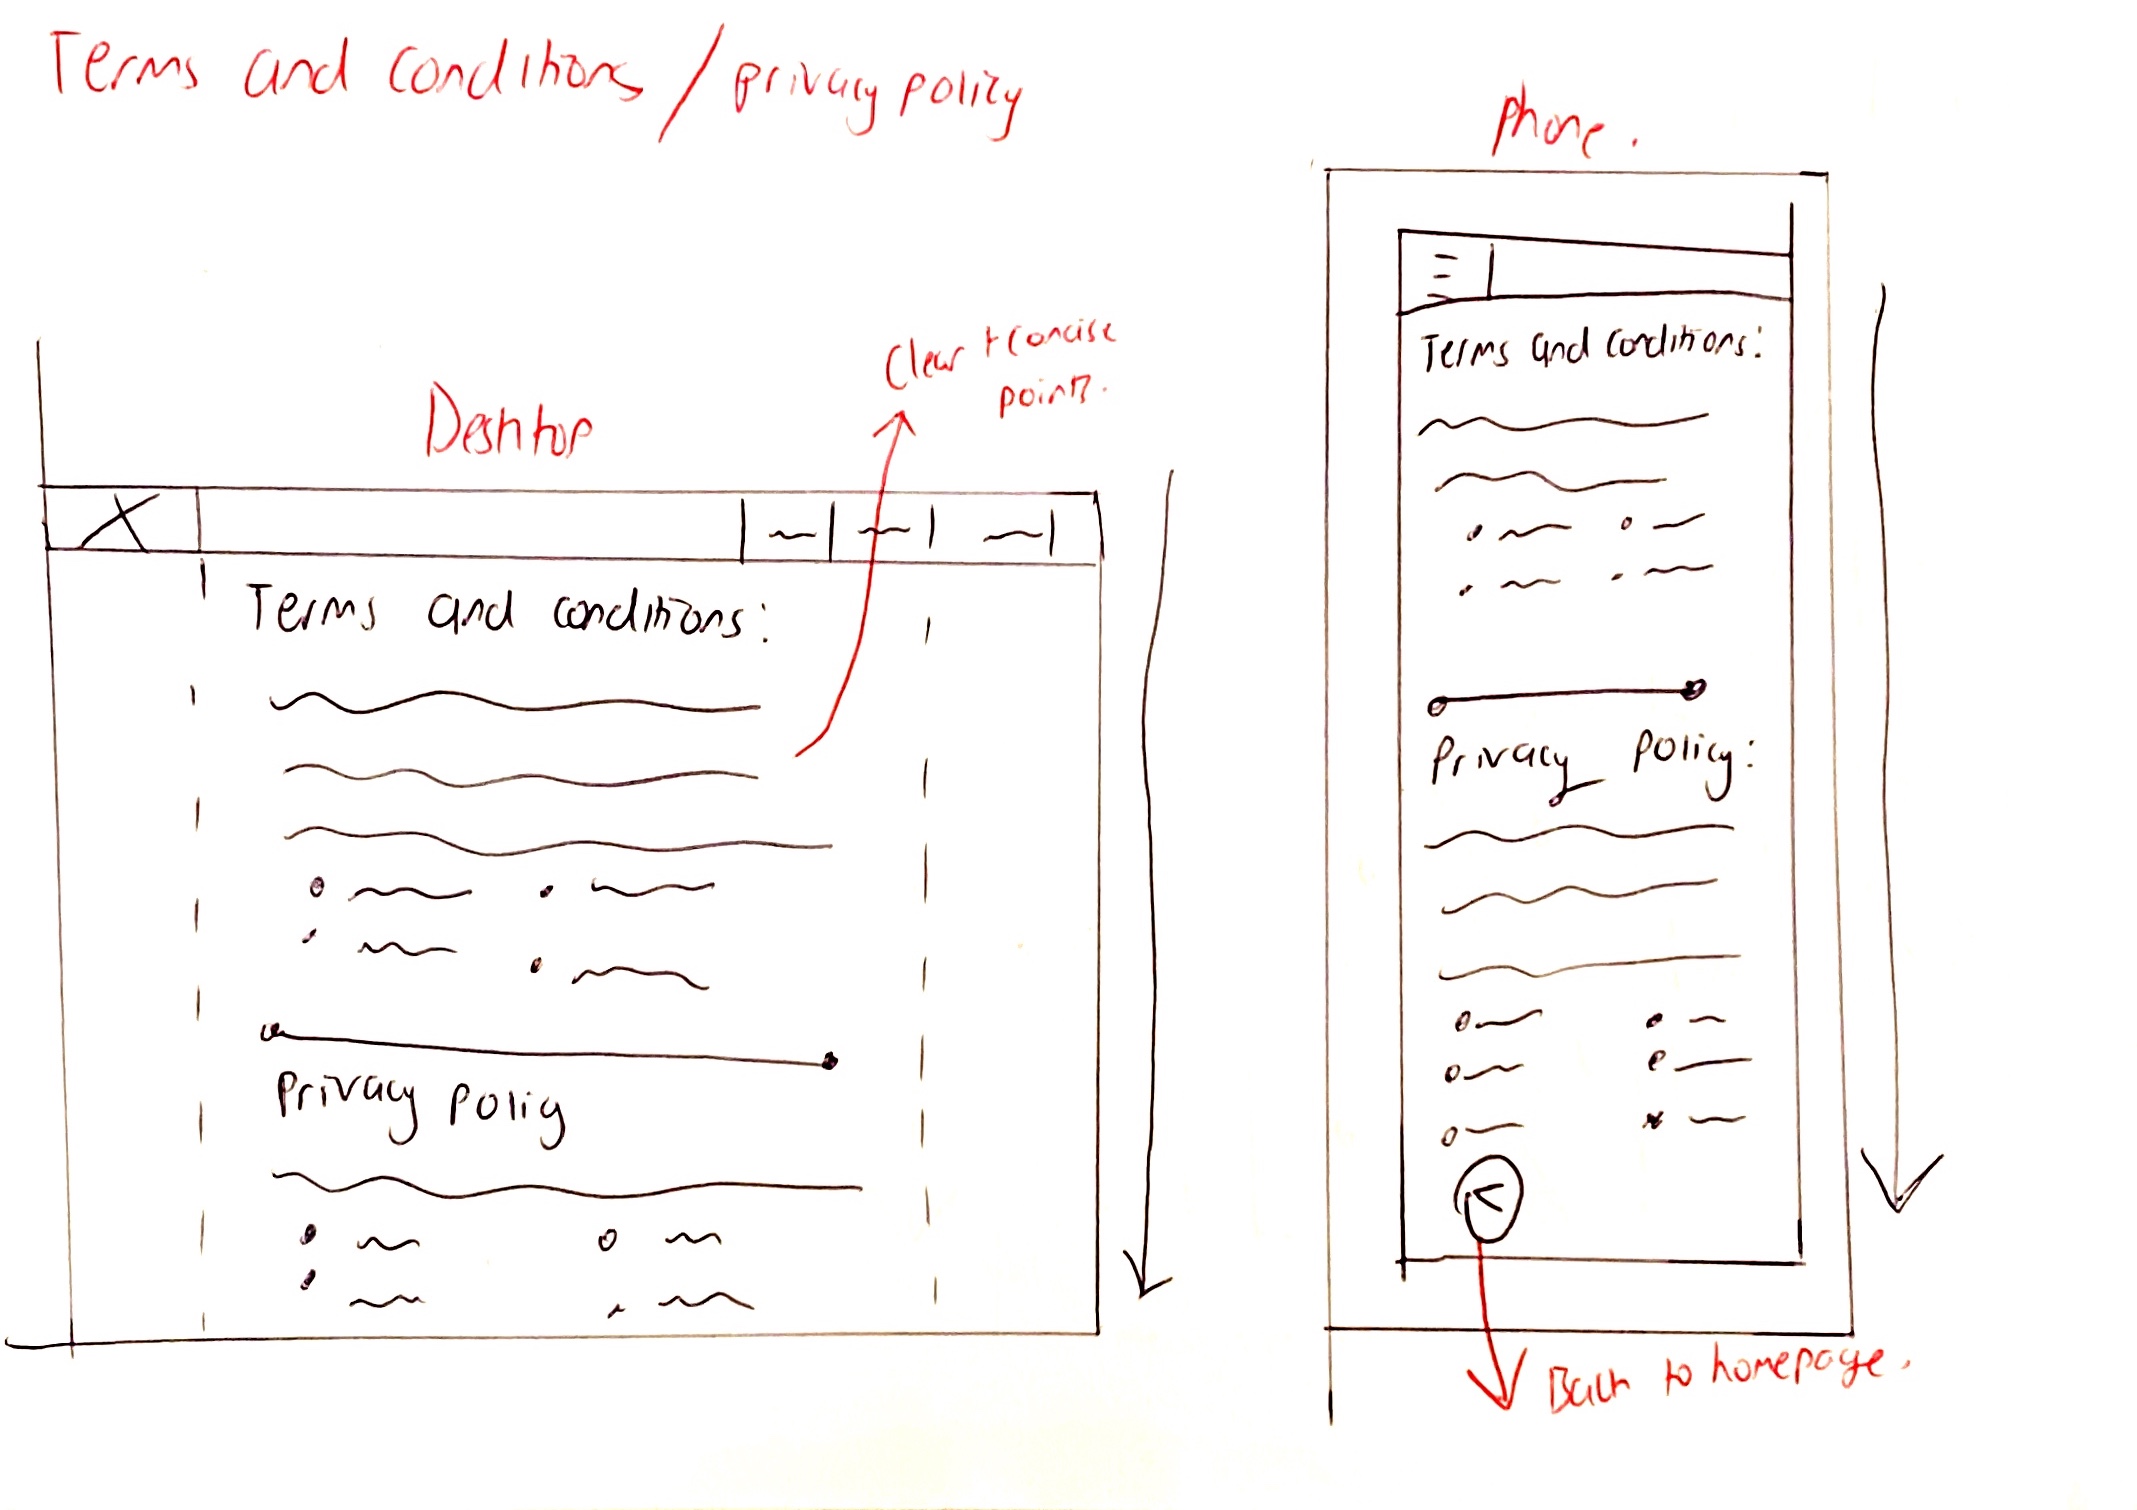 Terms and conditions / privacy policy
phone.
Clear + concise
points.
Desktop
Terms and conditions:
Privacy policy
Terms and conditions:
Privacy policy:
Back to homepage.